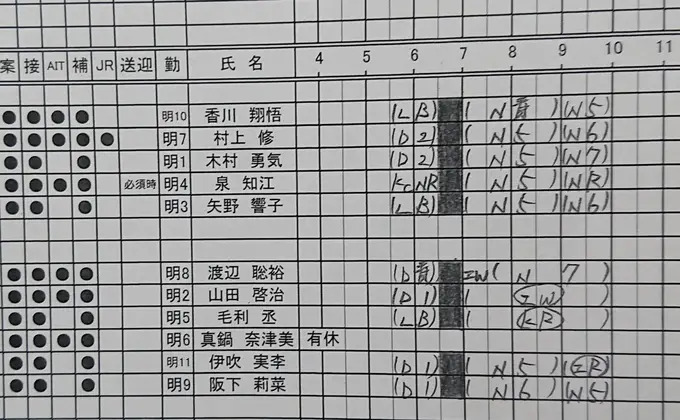 案 接 AIT 補 JR 送迎 勤 氏 名 4 5 6 7 8 9 10 11
● ● ● ● 明10 香川 翔悟 (L B) ( N )(N5)
● ● ● ● ● 明7 村上 修 (D2) ( N 5 )(N6)
● ● ● 明1 木村 勇気 (D2) ( N 5 )(N7)
● ● ● ● 必須時 明4 泉 知江 NR ( N 5 )(NR)
● ● ● 明3 矢野 響子 (L B) ( N 5 )(N6)
● ● ● ● 明8 渡辺 聡裕 (D ) IW( N 7 )
● ● ● ● 明2 山田 啓治 (D1) ( IW )
● ● ● 明5 毛利 丞 (L B) ( KR )
● ● ● ● 明6 真鍋 奈津美 有休
● ● ● 明11 伊吹 実李 (D1) ( N 5 )(IR)
● ● ● 明9 阪下 莉菜 (D1) ( N 6 )(N5)